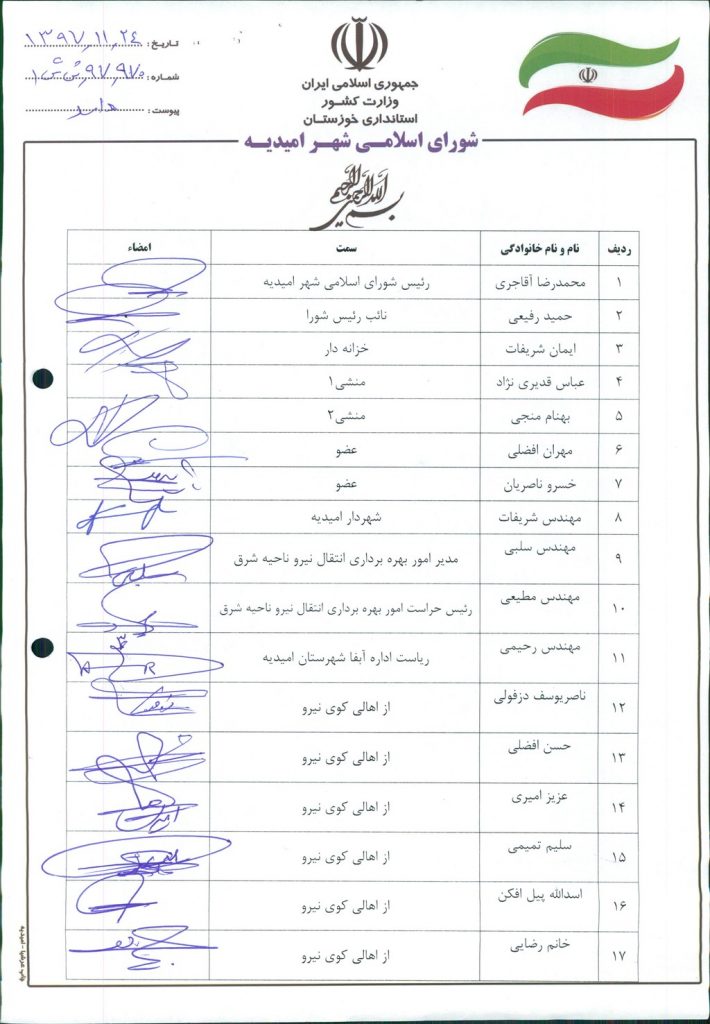 جمهوری اسلامی ایران
وزارت کشور
استانداری خوزستان
تاریخ : ۱۳۹۷,۱۱,۲۴
شماره : ۹۷,۹۷۰
پیوست : دارد
شورای اسلامی شهر امیدیه
بسم الله الرحمن الرحیم
ردیف نام و نام خانوادگی سمت امضاء
۱ محمدرضا آقاجری رئیس شورای اسلامی شهر امیدیه
۲ حمید رفیعی نائب رئیس شورا
۳ ایمان شریفات خزانه دار
۴ عباس قدیری نژاد منشی۱
۵ بهنام منجی منشی۲
۶ مهران افضلی عضو
۷ خسرو ناصریان عضو
۸ مهندس شریفات شهردار امیدیه
۹ مهندس سلبی مدیر امور بهره برداری انتقال نیرو ناحیه شرق
۱۰ مهندس مطیعی رئیس حراست امور بهره برداری انتقال نیرو ناحیه شرق
۱۱ مهندس رحیمی ریاست اداره آبفا شهرستان امیدیه
۱۲ ناصریوسف دزفولی از اهالی کوی نیرو
۱۳ حسن افضلی از اهالی کوی نیرو
۱۴ عزیز امیری از اهالی کوی نیرو
۱۵ سلیم تمیمی از اهالی کوی نیرو
۱۶ اسدالله پیل افکن از اهالی کوی نیرو
۱۷ خانم رضایی از اهالی کوی نیرو